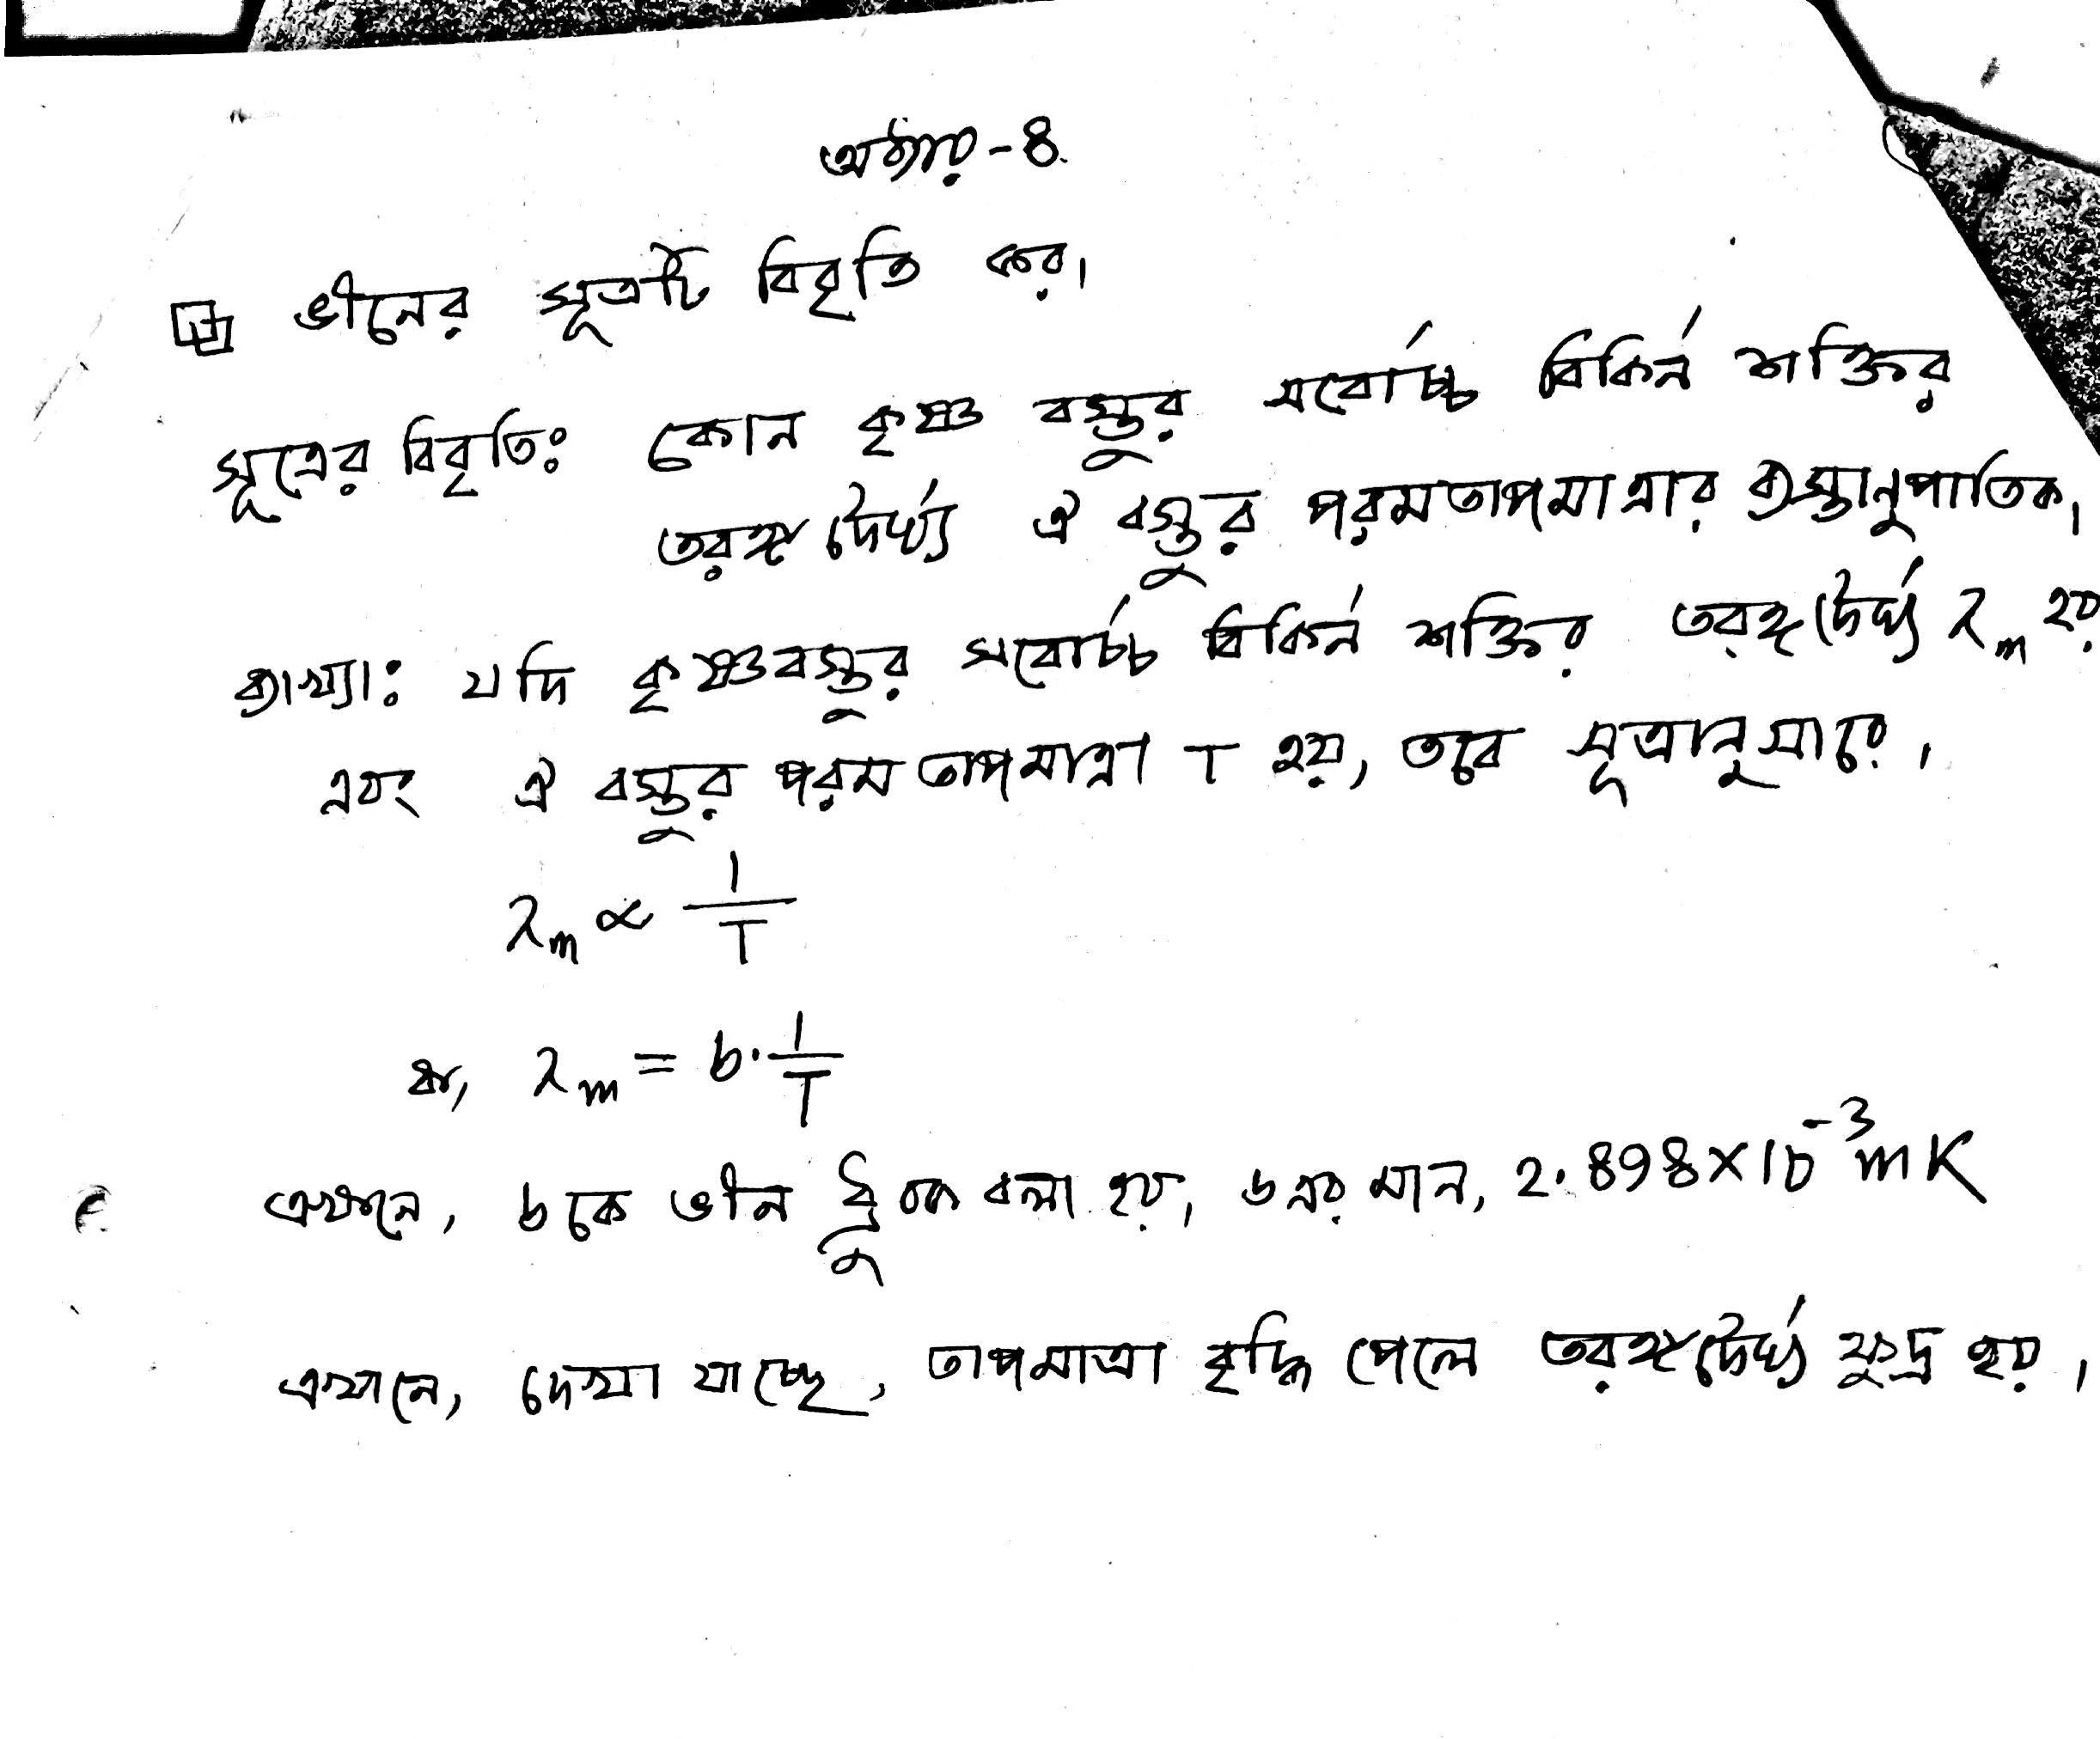 অধ্যায় - ৪
ভীনের সূত্রটি বিবৃতি কর।
সূত্রের বিবৃতিঃ কোন কৃষ্ণ বস্তুর সবোর্চ্চ বিকির্ন শক্তির
তরঙ্গ দৈর্ঘ্য ঐ বস্তুর পরম তাপমাত্রার ব্যস্তানুপাতিক।
ব্যাখ্যাঃ যদি কৃষ্ণবস্তুর সবোর্চ্চ বিকির্ন শক্তির তরঙ্গ দৈর্ঘ্য λm হয়
এবং ঐ বস্তুর পরম তাপমাত্রা T হয়, তবে সূত্রানুসারে।
λm ∝ 1/T
বা, λm = b. 1/T
এখানে, b কে ভীন ধ্রুবক বলা হয়। b এর মান, 2.898×10⁻³ mK
এখানে, দেখা যাচ্ছে, তাপমাত্রা বৃদ্ধি পেলে তরঙ্গ দৈর্ঘ্য ক্ষুদ্র হয়।